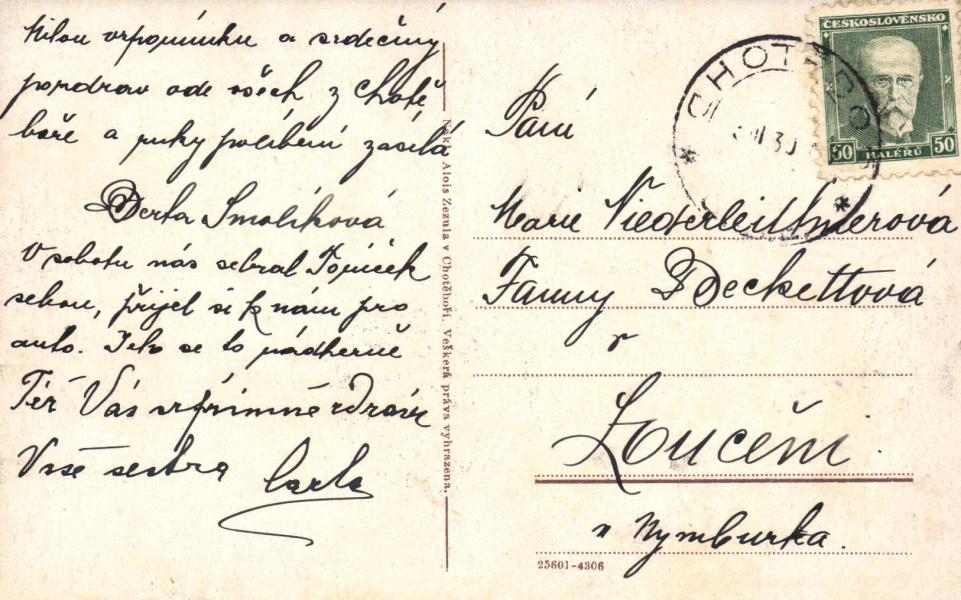 Milou vzpomínku a srdečný
pozdrav ode všech z Chotě
boře a ruky políbení zasílá
Berta Smolíková
V sobotu nás sebral Toníček
sebou, přijel si k nám pro
auto. Jelo se to nádherně
Též Vás upřímně zdraví
Vaše sestra Carla
Nakl. Alois Zezula v Chotěboři. Veškerá práva vyhrazena.
ČESKOSLOVENSKO
50 HALÉŘŮ 50
CHOTĚBOŘ
30
Paní
Marie Niederleithnerová
Fanny Beckettová
v
Loučeni
u Nymburka.
25601-4306